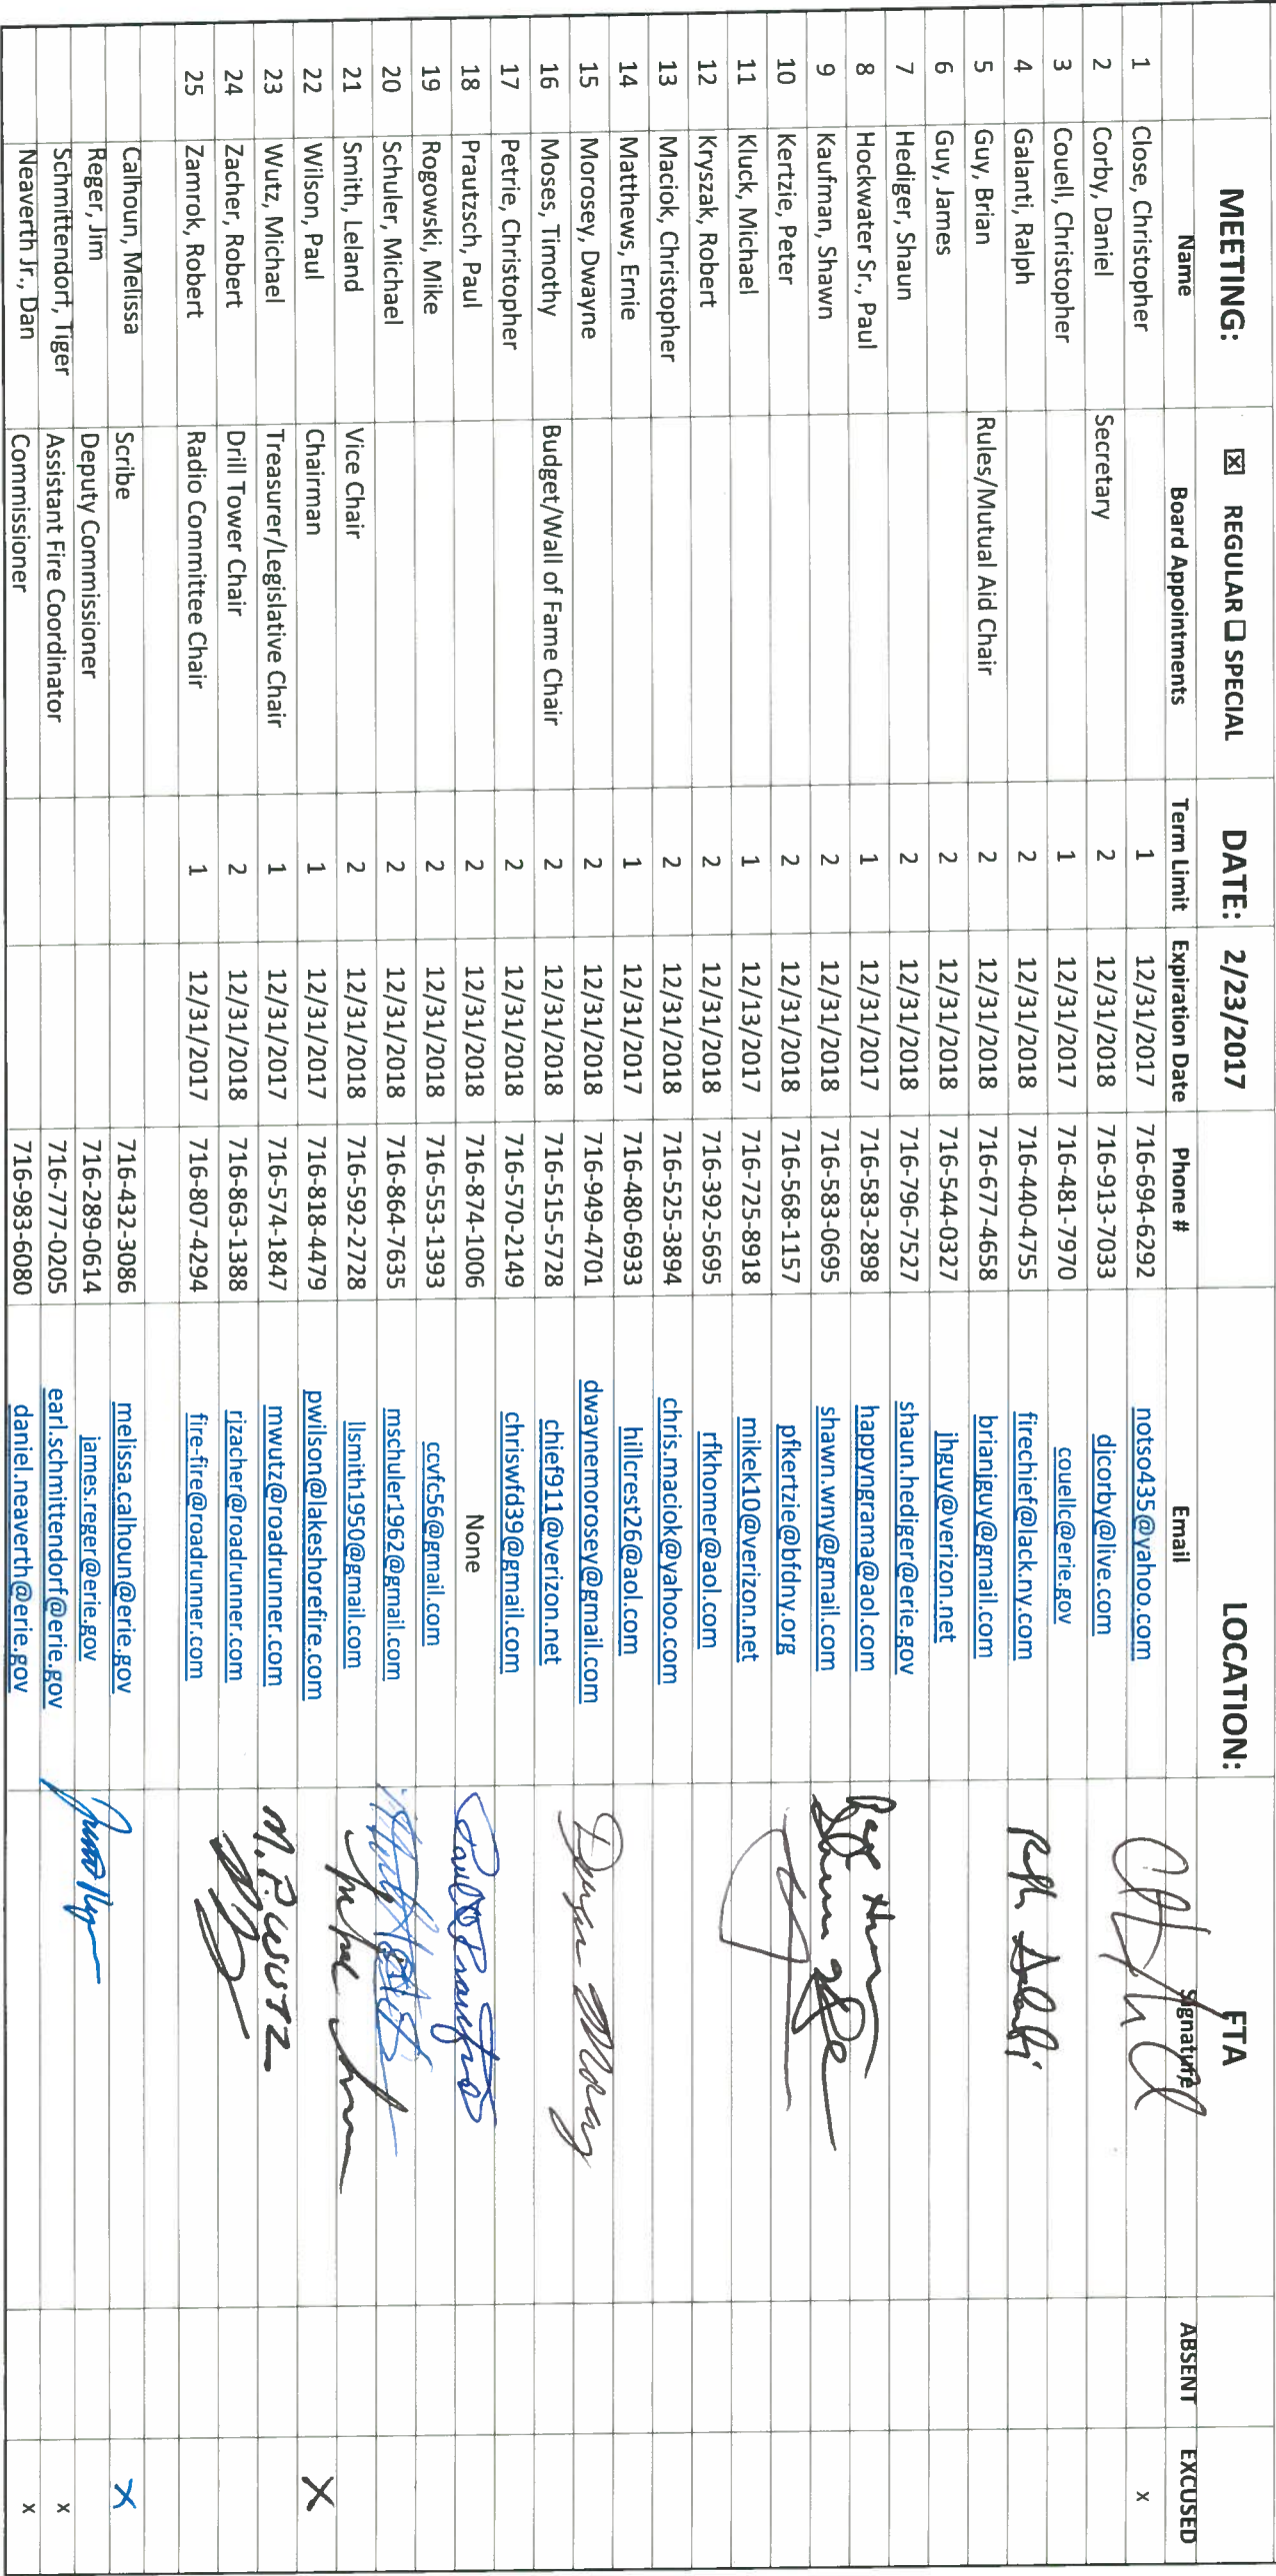 MEETING: ☒ REGULAR ☐ SPECIAL DATE: 2/23/2017 LOCATION: FTA
Name Board Appointments Term Limit Expiration Date Phone # Email Signature ABSENT EXCUSED
1 Close, Christopher 1 12/31/2017 716-694-6292 notso435@yahoo.com x
2 Corby, Daniel Secretary 2 12/31/2018 716-913-7033 djcorby@live.com
3 Couell, Christopher 1 12/31/2017 716-481-7970 couellc@erie.gov
4 Galanti, Ralph 2 12/31/2018 716-440-4755 firechief@lack.ny.com Ralph Galanti
5 Guy, Brian Rules/Mutual Aid Chair 2 12/31/2018 716-677-4658 brianjguy@gmail.com
6 Guy, James 2 12/31/2018 716-544-0327 jhguy@verizon.net
7 Hediger, Shaun 2 12/31/2018 716-796-7527 shaun.hediger@erie.gov
8 Hockwater Sr., Paul 1 12/31/2017 716-583-2898 happyngrama@aol.com
9 Kaufman, Shawn 2 12/31/2018 716-583-0695 shawn.wny@gmail.com
10 Kertzie, Peter 2 12/31/2018 716-568-1157 pfkertzie@bfdny.org
11 Kluck, Michael 1 12/13/2017 716-725-8918 mikek10@verizon.net
12 Kryszak, Robert 2 12/31/2018 716-392-5695 rfkhomer@aol.com
13 Maciok, Christopher 2 12/31/2018 716-525-3894 chris.maciok@yahoo.com
14 Matthews, Ernie 1 12/31/2017 716-480-6933 hillcrest26@aol.com
15 Morosey, Dwayne 2 12/31/2018 716-949-4701 dwaynemorosey@gmail.com
16 Moses, Timothy Budget/Wall of Fame Chair 2 12/31/2018 716-515-5728 chief911@verizon.net
17 Petrie, Christopher 2 12/31/2018 716-570-2149 chriswfd39@gmail.com
18 Prautzsch, Paul 2 12/31/2018 716-874-1006 None
19 Rogowski, Mike 2 12/31/2018 716-553-1393 ccvfc56@gmail.com
20 Schuler, Michael 2 12/31/2018 716-864-7635 mschuler1962@gmail.com
21 Smith, Leland Vice Chair 2 12/31/2018 716-592-2728 llsmith1950@gmail.com
22 Wilson, Paul Chairman 1 12/31/2017 716-818-4479 pwilson@lakeshorefire.com X
23 Wutz, Michael Treasurer/Legislative Chair 1 12/31/2017 716-574-1847 mwutz@roadrunner.com M.P. Wutz
24 Zacher, Robert Drill Tower Chair 2 12/31/2018 716-863-1388 rjzacher@roadrunner.com
25 Zamrok, Robert Radio Committee Chair 1 12/31/2017 716-807-4294 fire-fire@roadrunner.com
Calhoun, Melissa Scribe 716-432-3086 melissa.calhoun@erie.gov X
Reger, Jim Deputy Commissioner 716-289-0614 james.reger@erie.gov
Schmittendorf, Tiger Assistant Fire Coordinator 716-777-0205 earl.schmittendorf@erie.gov x
Neaverth Jr., Dan Commissioner 716-983-6080 daniel.neaverth@erie.gov x